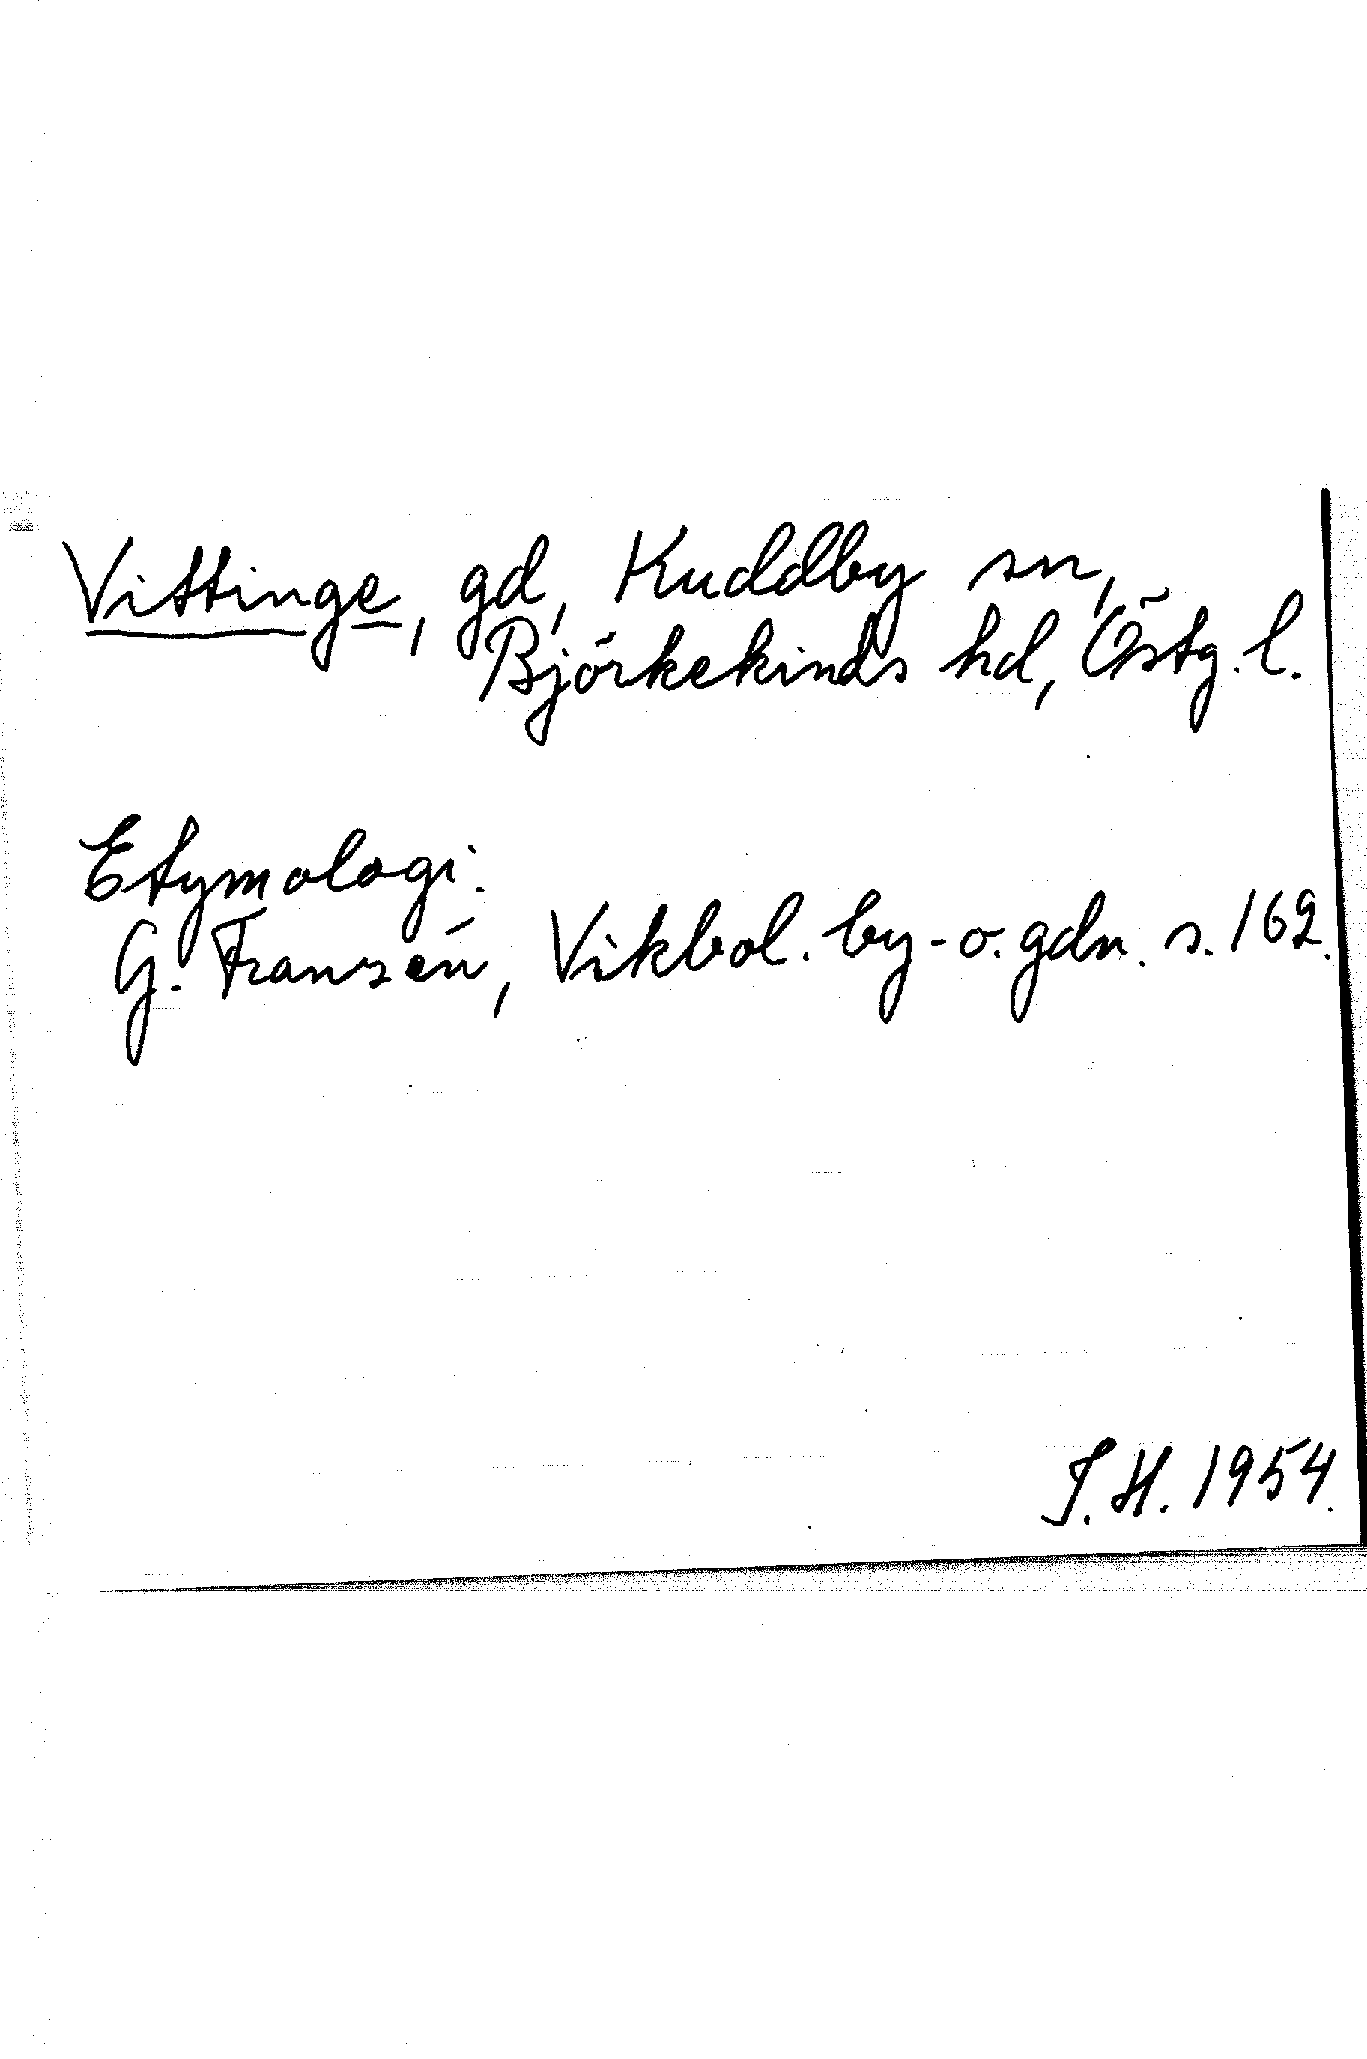 Vittinge, gd, Kuddby sn,
Björkekinds hd, Östg. l.
Etymologi.
G. Franzén, Vikbol. by- o. gdn. s. 162.
I.H. 1954.